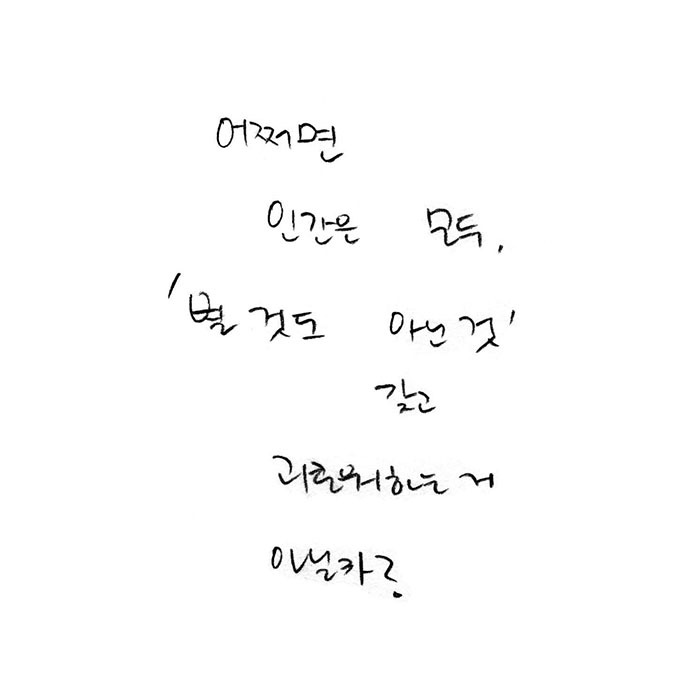 어쩌면
인간은 모두,
'별 것도 아닌 것'
갖고
괴로워하는 거
아닐까?